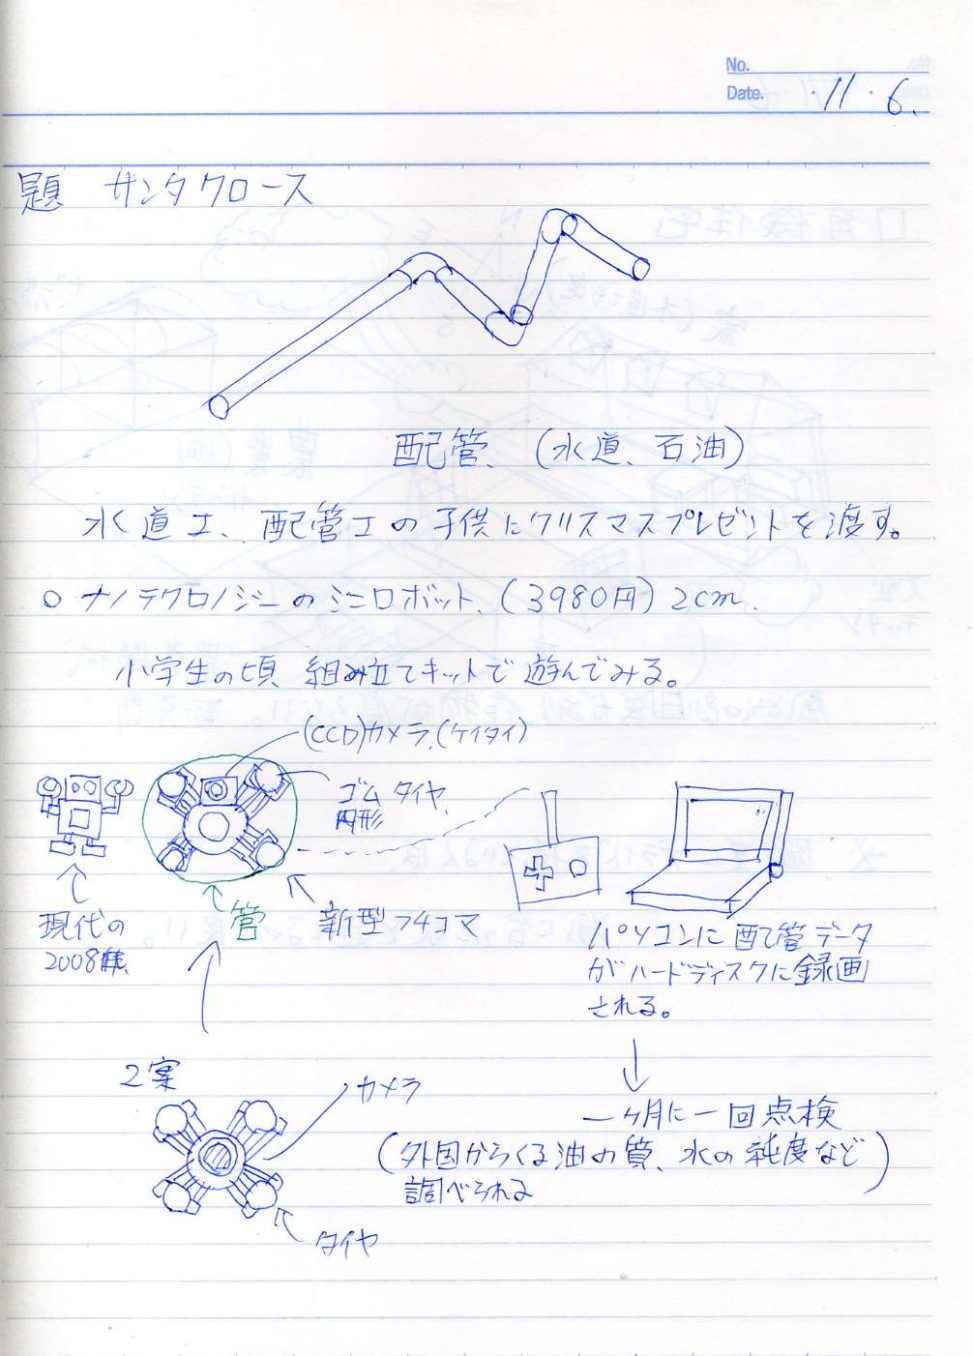 No.
Date. ・11・6.
題 サンタクロース
配管、(水道、石油)
水道工、配管工の子供にクリスマスプレゼントを渡す。
○ ナノテクロノジーのミニロボット、(3980円) 2cm.
小学生の頃 組み立てキットで遊んでみる。
(CCD)カメラ、(ケイタイ)
ゴムタイヤ、
円形
現代の
2008年
管
新型フチコマ
パソコンに配管データ
がハードディスクに録画
される。
2案
カメラ
タイヤ
一ヶ月に一回点検
(外国からくる油の質、水の純度など)
調べられる